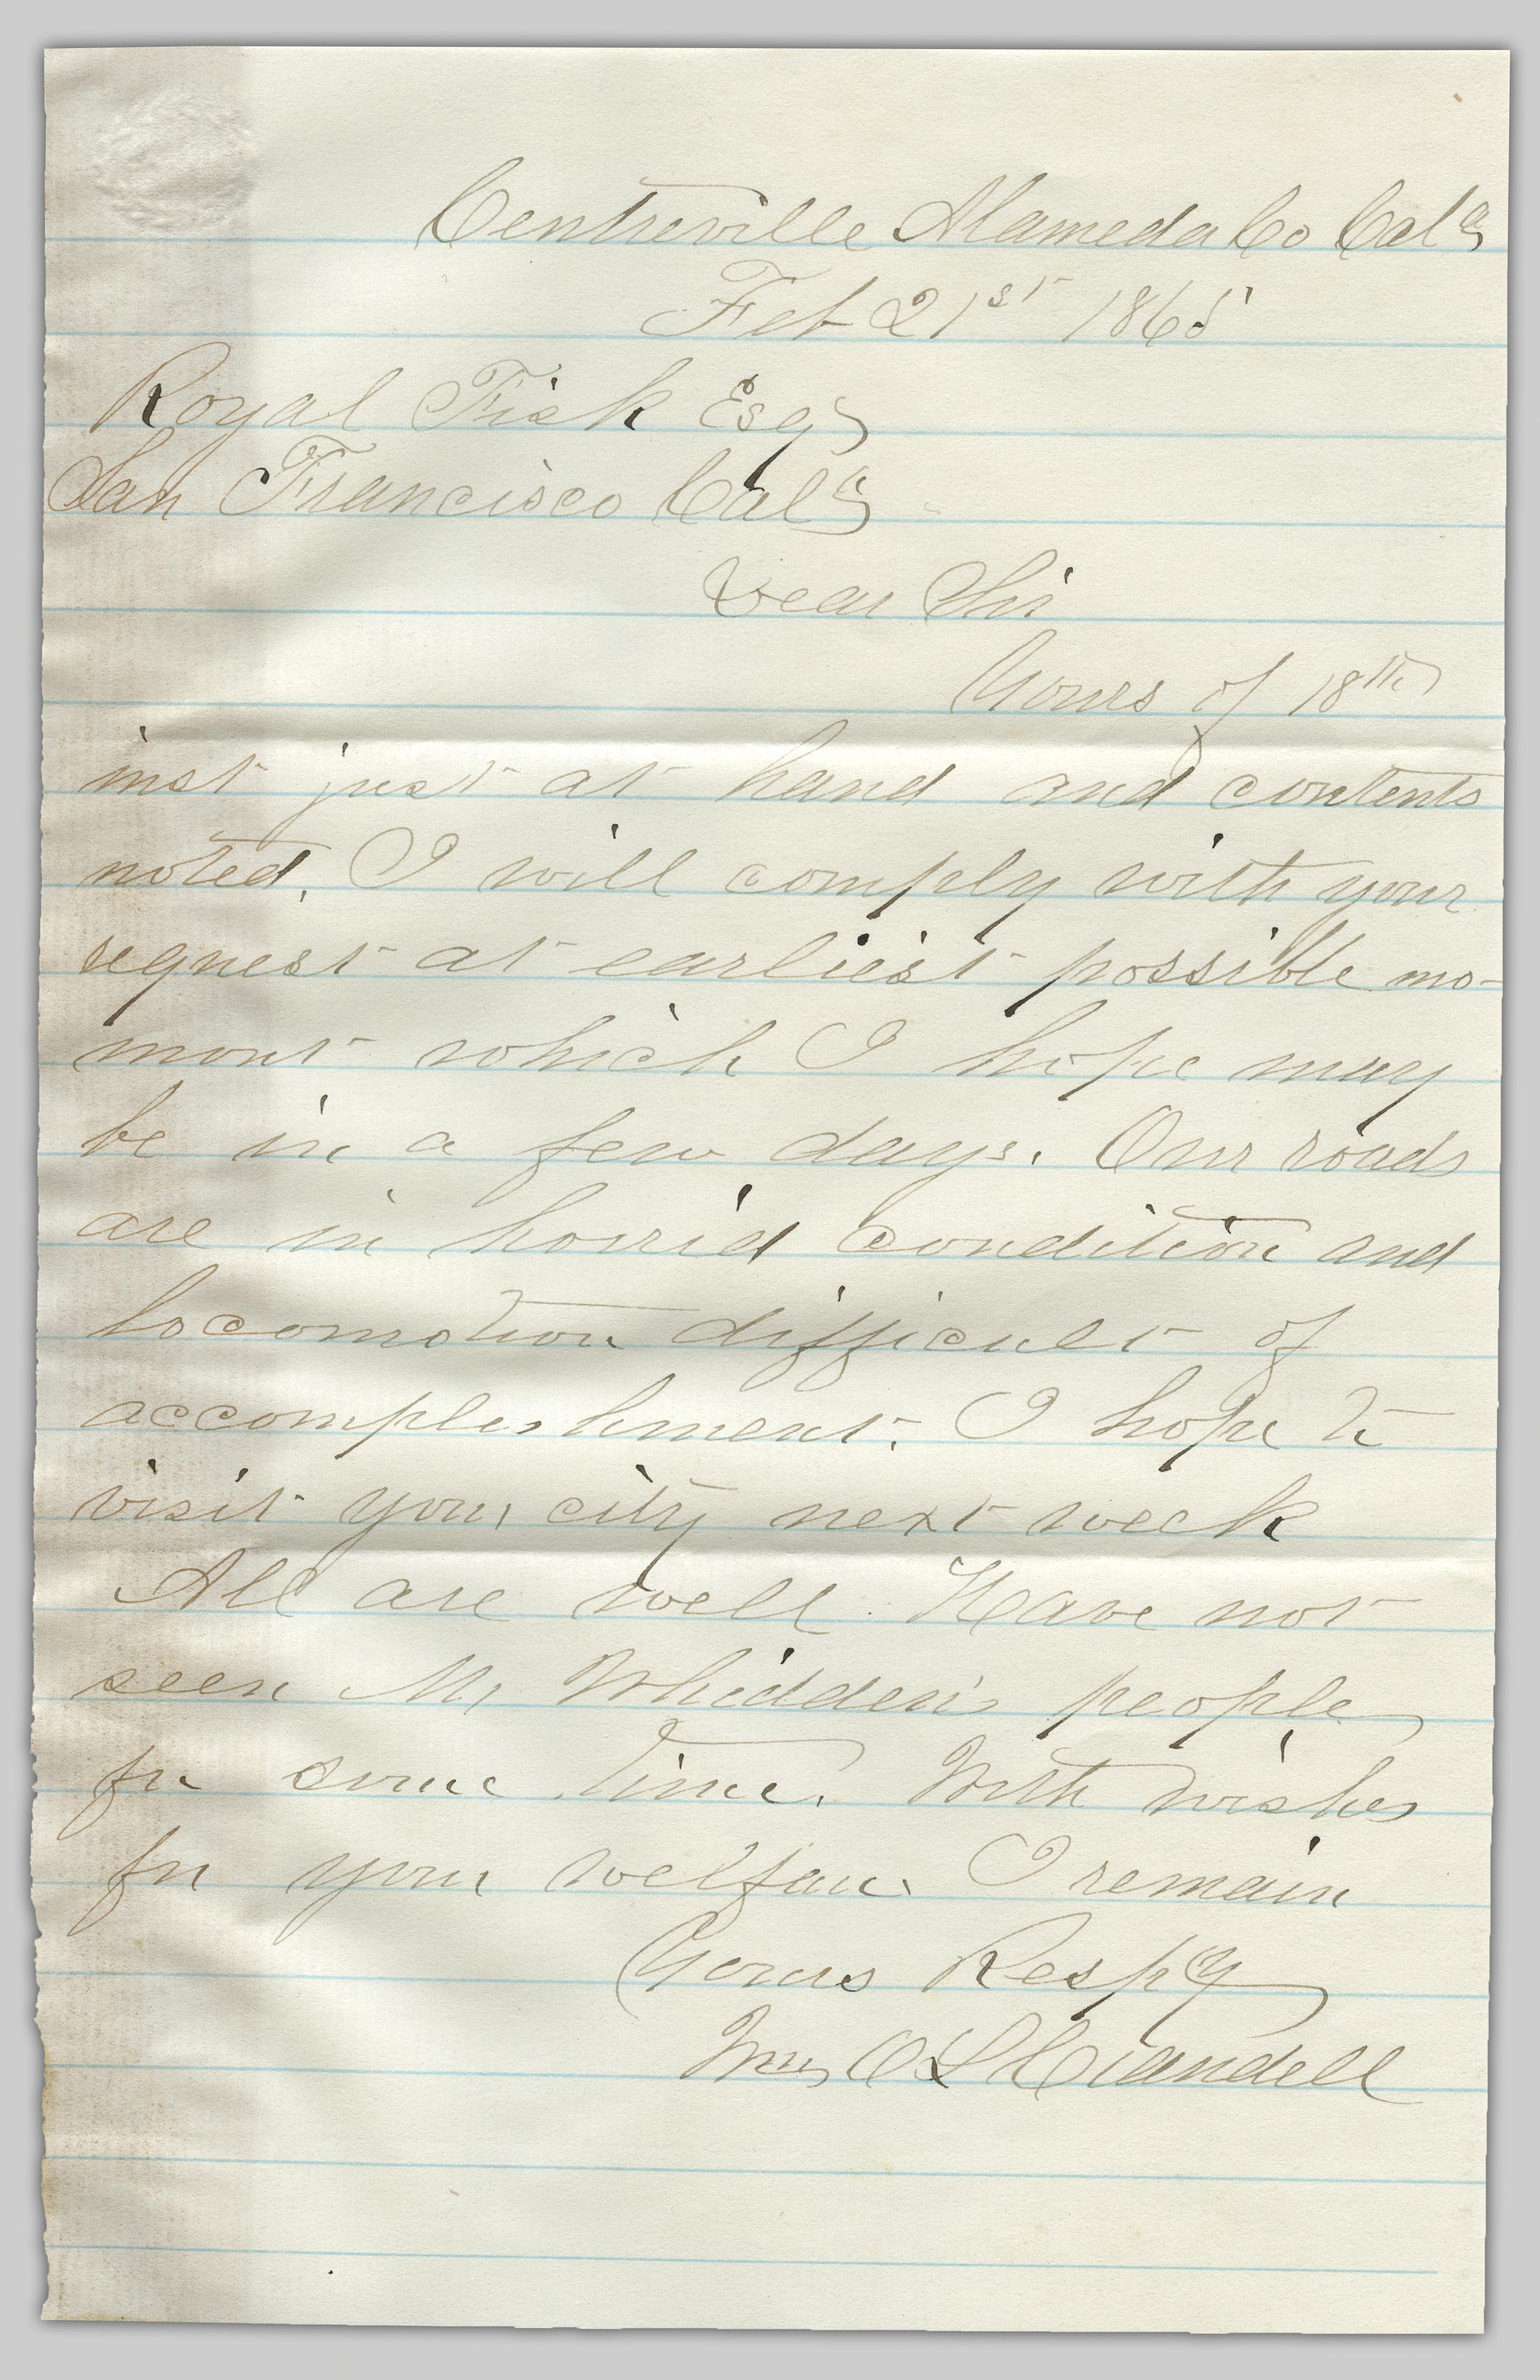 Centreville Alameda Co Cala
Feb 21st 1865
Royal Fisk Esq
San Francisco Cala
Dear Sir
Yours of 18th
inst just at hand and contents
noted. I will comply with your
request at earliest possible mo-
ment which I hope may
be in a few days. Our roads
are in horrid condition and
locomotion difficult of
accomplishment. I hope to
visit your city next week
All are well. Have not
seen Mr Whidden's people
for some time. With wishes
for your welfare I remain
Yours Respy
Crandell